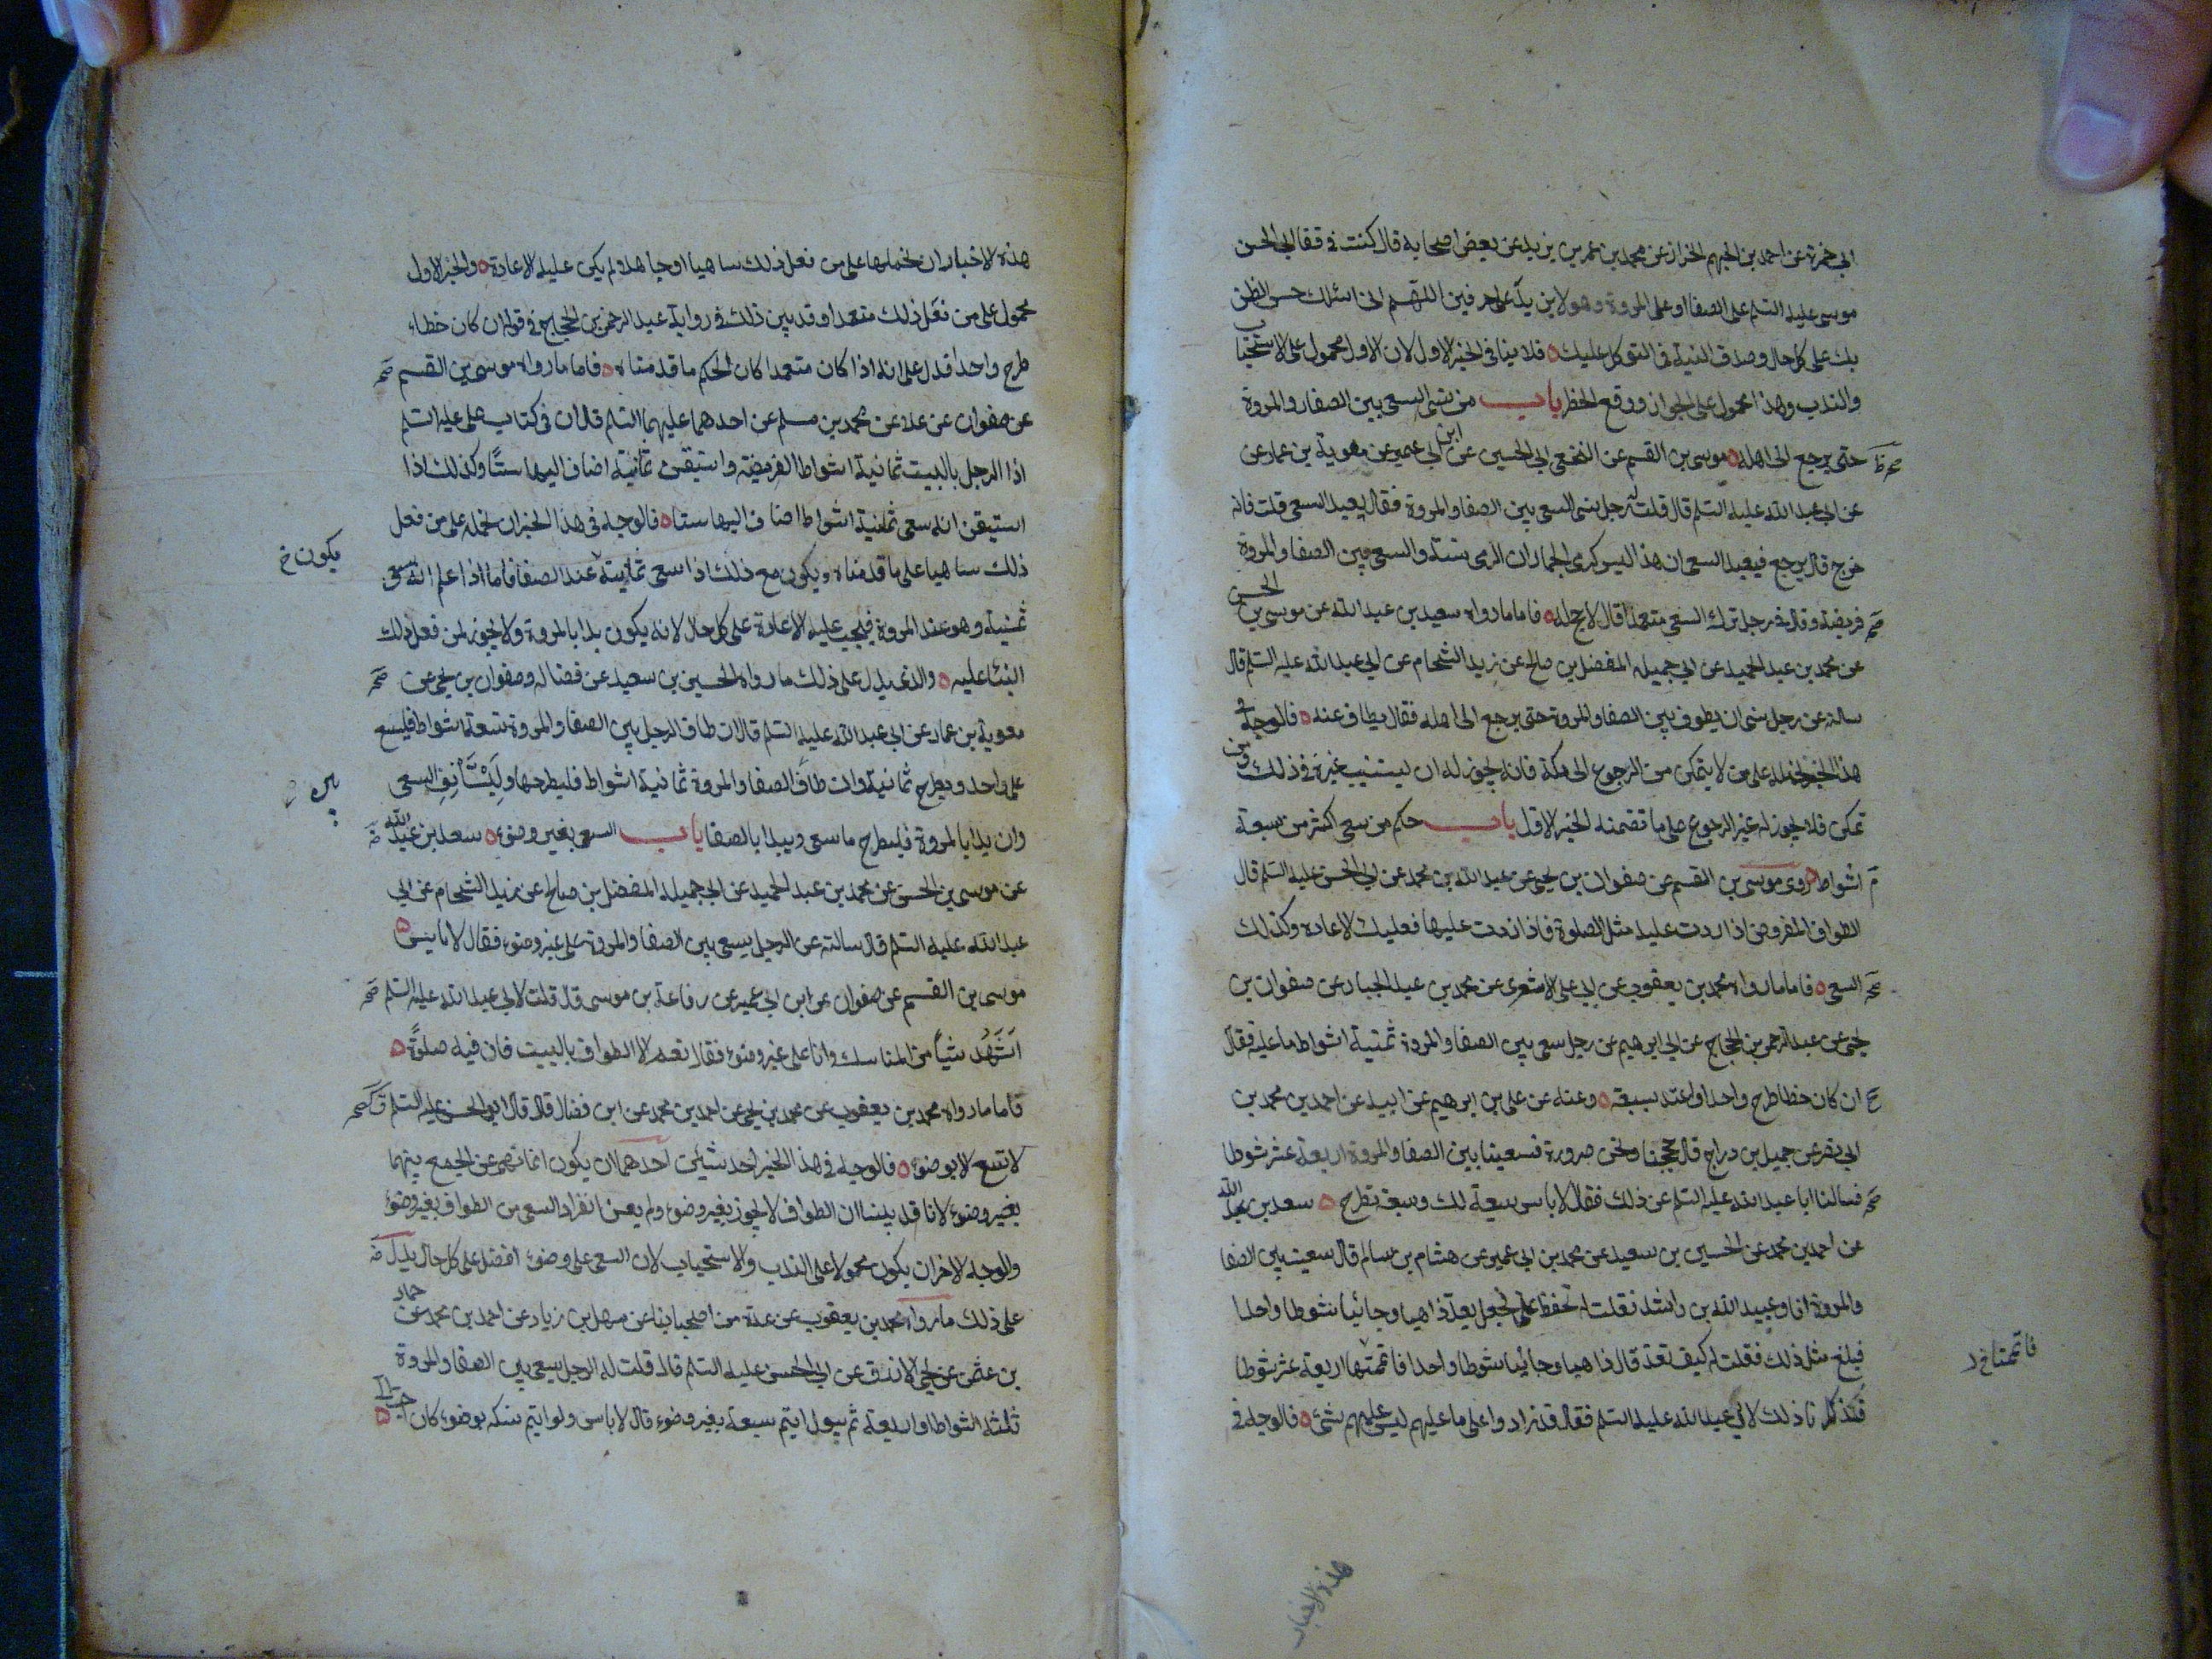 ابي حمزة عن احمد بن الجهم الخزاز عن محمد بن عمر بن يزيد عن بعض اصحابه قال كنت في قفا ابي الحسن
موسى عليه السلم على الصفا او على المروة وهو لا يزيد على حرفين اللهم اني اسئلك حسن الظن
بك على كل حال وصدق النية في التوكل عليك فلا ينافي الخبر الاول لان الاول محمول على الاستحباب
والندب وهذا محمول على الجواز ورفع الحظر باب من نسى السعي بين الصفا والمروة
حتى يرجع الى اهله موسى بن القسم عن النخعي ابي الحسين عن ابن ابي عمير عن معوية بن عمار عن
عن ابي عبد الله عليه السلم قال قلت له رجل نسى السعي بين الصفا والمروة فقال يعيد السعي قلت فانه
خرج قال يرجع فيعيد السعي ان هذا ليس كرمى الجمار ان الرمى سنة والسعي بين الصفا والمروة
فريضة وقال في رجل ترك السعي متعمدا قال لا حج له فاما ما رواه سعد بن عبد الله عن موسى بن الحسن
عن محمد بن عبد الحميد عن ابي جميلة المفضل بن صالح عن زيد الشحام عن ابي عبد الله عليه السلم قال
سالته عن رجل نسى ان يطوف بين الصفا والمروة حتى يرجع الى اهله فقال يطاف عنه فالوجه في
هذا الخبر نحمله على من لا يتمكن من الرجوع الى مكة فانه يجوز له ان يستنيب غيره في ذلك ومن
تمكن فلا يجوز له غير الرجوع على ما تضمنه الخبر الاول باب حكم من سعى اكثر من سبعة
اشواط روى موسى بن القسم عن صفوان بن يحيى عن عبد الله بن محمد عن ابي الحسن عليه السلم قال
الطواف المفروض اذا زدت عليه مثل الصلوة فاذا زدت عليها فعليك الاعادة وكذلك
السعي فاما ما رواه محمد بن يعقوب عن ابي علي الاشعري عن محمد بن عبد الجبار عن صفوان بن
يحيى عن عبد الرحمن بن الحجاج عن ابي ابرهيم عن رجل سعى بين الصفا والمروة ثمنية اشواط ما عليه فقال
ان كان خطا طرح واحدا واعتد بسبعة وعنه عن علي بن ابرهيم عن ابيه عن احمد بن محمد بن
ابي نصر عن جميل بن دراج قال حججنا ونحن صرورة فسعينا بين الصفا والمروة اربعة عشر شوطا
فسالنا ابا عبد الله عليه السلم عن ذلك فقال لا باس سبعة لك وسبعة تطرح سعد بن عبد الله
عن احمد بن محمد عن الحسين بن سعيد عن محمد بن ابي عمير عن هشام بن سالم قال سعيت بين الصفا
والمروة انا وعبيد الله بن راشد فقلت له تحفظ على فجعل يعد ذاهبا وجائيا شوطا واحدا
فبلغ مثل ذلك فقلت له كيف تعد قال ذاهبا وجائيا شوطا واحدا فاتممتها اربعة عشر شوطا
فاتممنا خ د
فذكرنا ذلك لابي عبد الله عليه السلم فقال قد زادوا على ما عليهم ليس عليهم شئ فالوجه في
هذه الاخبار
هذه الاخبار ان نحملها على من فعل ذلك ساهيا او جاهلا لم يكن عليه الاعادة والخبر الاول
محمول على من فعل ذلك متعمدا وقد بين ذلك في رواية عبد الرحمن بن الحجاج في قوله ان كان خطاء
طرح واحدا فدل على انه اذا كان متعمدا كان الحكم ما قدمناه فاما ما رواه موسى بن القسم
عن صفوان عن علا عن محمد بن مسلم عن احدهما عليهما السلم قال ان في كتاب علي عليه السلم
اذا الرجل بالبيت ثمانية اشواط الفريضة واستيقن ثمانية اضاف اليها ستا وكذلك اذا
استيقن انه سعى ثمنية اشواط اضاف اليها ستا فالوجه في هذا الخبر ان نحمله على من فعل
ذلك ساهيا على ما قدمناه ويكون مع ذلك اذا سعى ثمانية عند الصفا فاما اذا علم انه سعى
يكون خ
ثمنية وهو عند المروة فيجب عليه الاعادة على كل حال لانه يكون بدا بالمروة ولا يجوز لمن فعل ذلك
البناء عليه والذي يدل على ذلك ما رواه الحسين بن سعيد عن فضالة وصفوان بن يحيى عن
معوية بن عمار عن ابي عبد الله عليه السلم قال ان طاف الرجل بين الصفا والمروة تسعة اشواط فليسع
على واحد ويطرح ثمانية وان طاف الصفا والمروة ثمانية اشواط فليطرحها وليستأنف السعي
بين
وان بدا بالمروة فليطرح ما سعى ويبدا بالصفا باب السعي بغير وضوء سعد بن عبد الله
عن موسى بن الحسن عن محمد بن عبد الحميد عن ابي جميلة المفضل بن صالح عن زيد الشحام عن ابي
عبد الله عليه السلم قال سالته عن الرجل يسعى بين الصفا والمروة على غير وضوء فقال لا باس
موسى بن القسم عن صفوان عن ابن ابي عمير عن رفاعة بن موسى قال قلت لابي عبد الله عليه السلم
اشهد شيئا من المناسك وانا على غير وضوء فقال نعم الا الطواف بالبيت فان فيه صلوة
فاما ما رواه محمد بن يعقوب عن محمد بن يحيى عن احمد بن محمد عن ابن فضال قال قال ابو الحسن عليه السلم
لا تسع الا بوضوء فالوجه في هذا الخبر احد شيئين احدهما ان يكون انما نهى عن الجمع بينهما
بغير وضوء لانا قد بينا ان الطواف لا يجوز بغير وضوء ولم يعن انفراد السعي من الطواف بغير وضوء
والوجه الاخر ان يكون محمولا على الندب والاستحباب لان السعي على وضوء افضل على كل حال يدل
على ذلك ما رواه محمد بن يعقوب عن عدة من اصحابنا عن سهل بن زياد عن احمد بن محمد عن حماد
بن عثمن عن يحيى الازرق عن ابي الحسن عليه السلم قال قلت له الرجل يسعى بين الصفا والمروة
ثلثة اشواط او اربعة ثم يبول ايتم سبعة بغير وضوء قال لا باس ولو اتم نسكه بوضوء كان احب الى